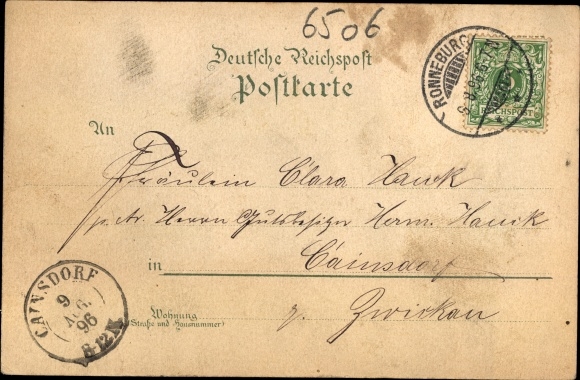 6506
Deutsche Reichspost
Postkarte
RONNEBURG
REICHSPOST
An
Fräulein Clara Hauck
p. Adr. Herrn Gutsbesitzer Herm. Hauck
in Cainsdorf
Wohnung
(Straße und Hausnummer)
Zwickau
CAINSDORF
9
AUG.
96
8-12N